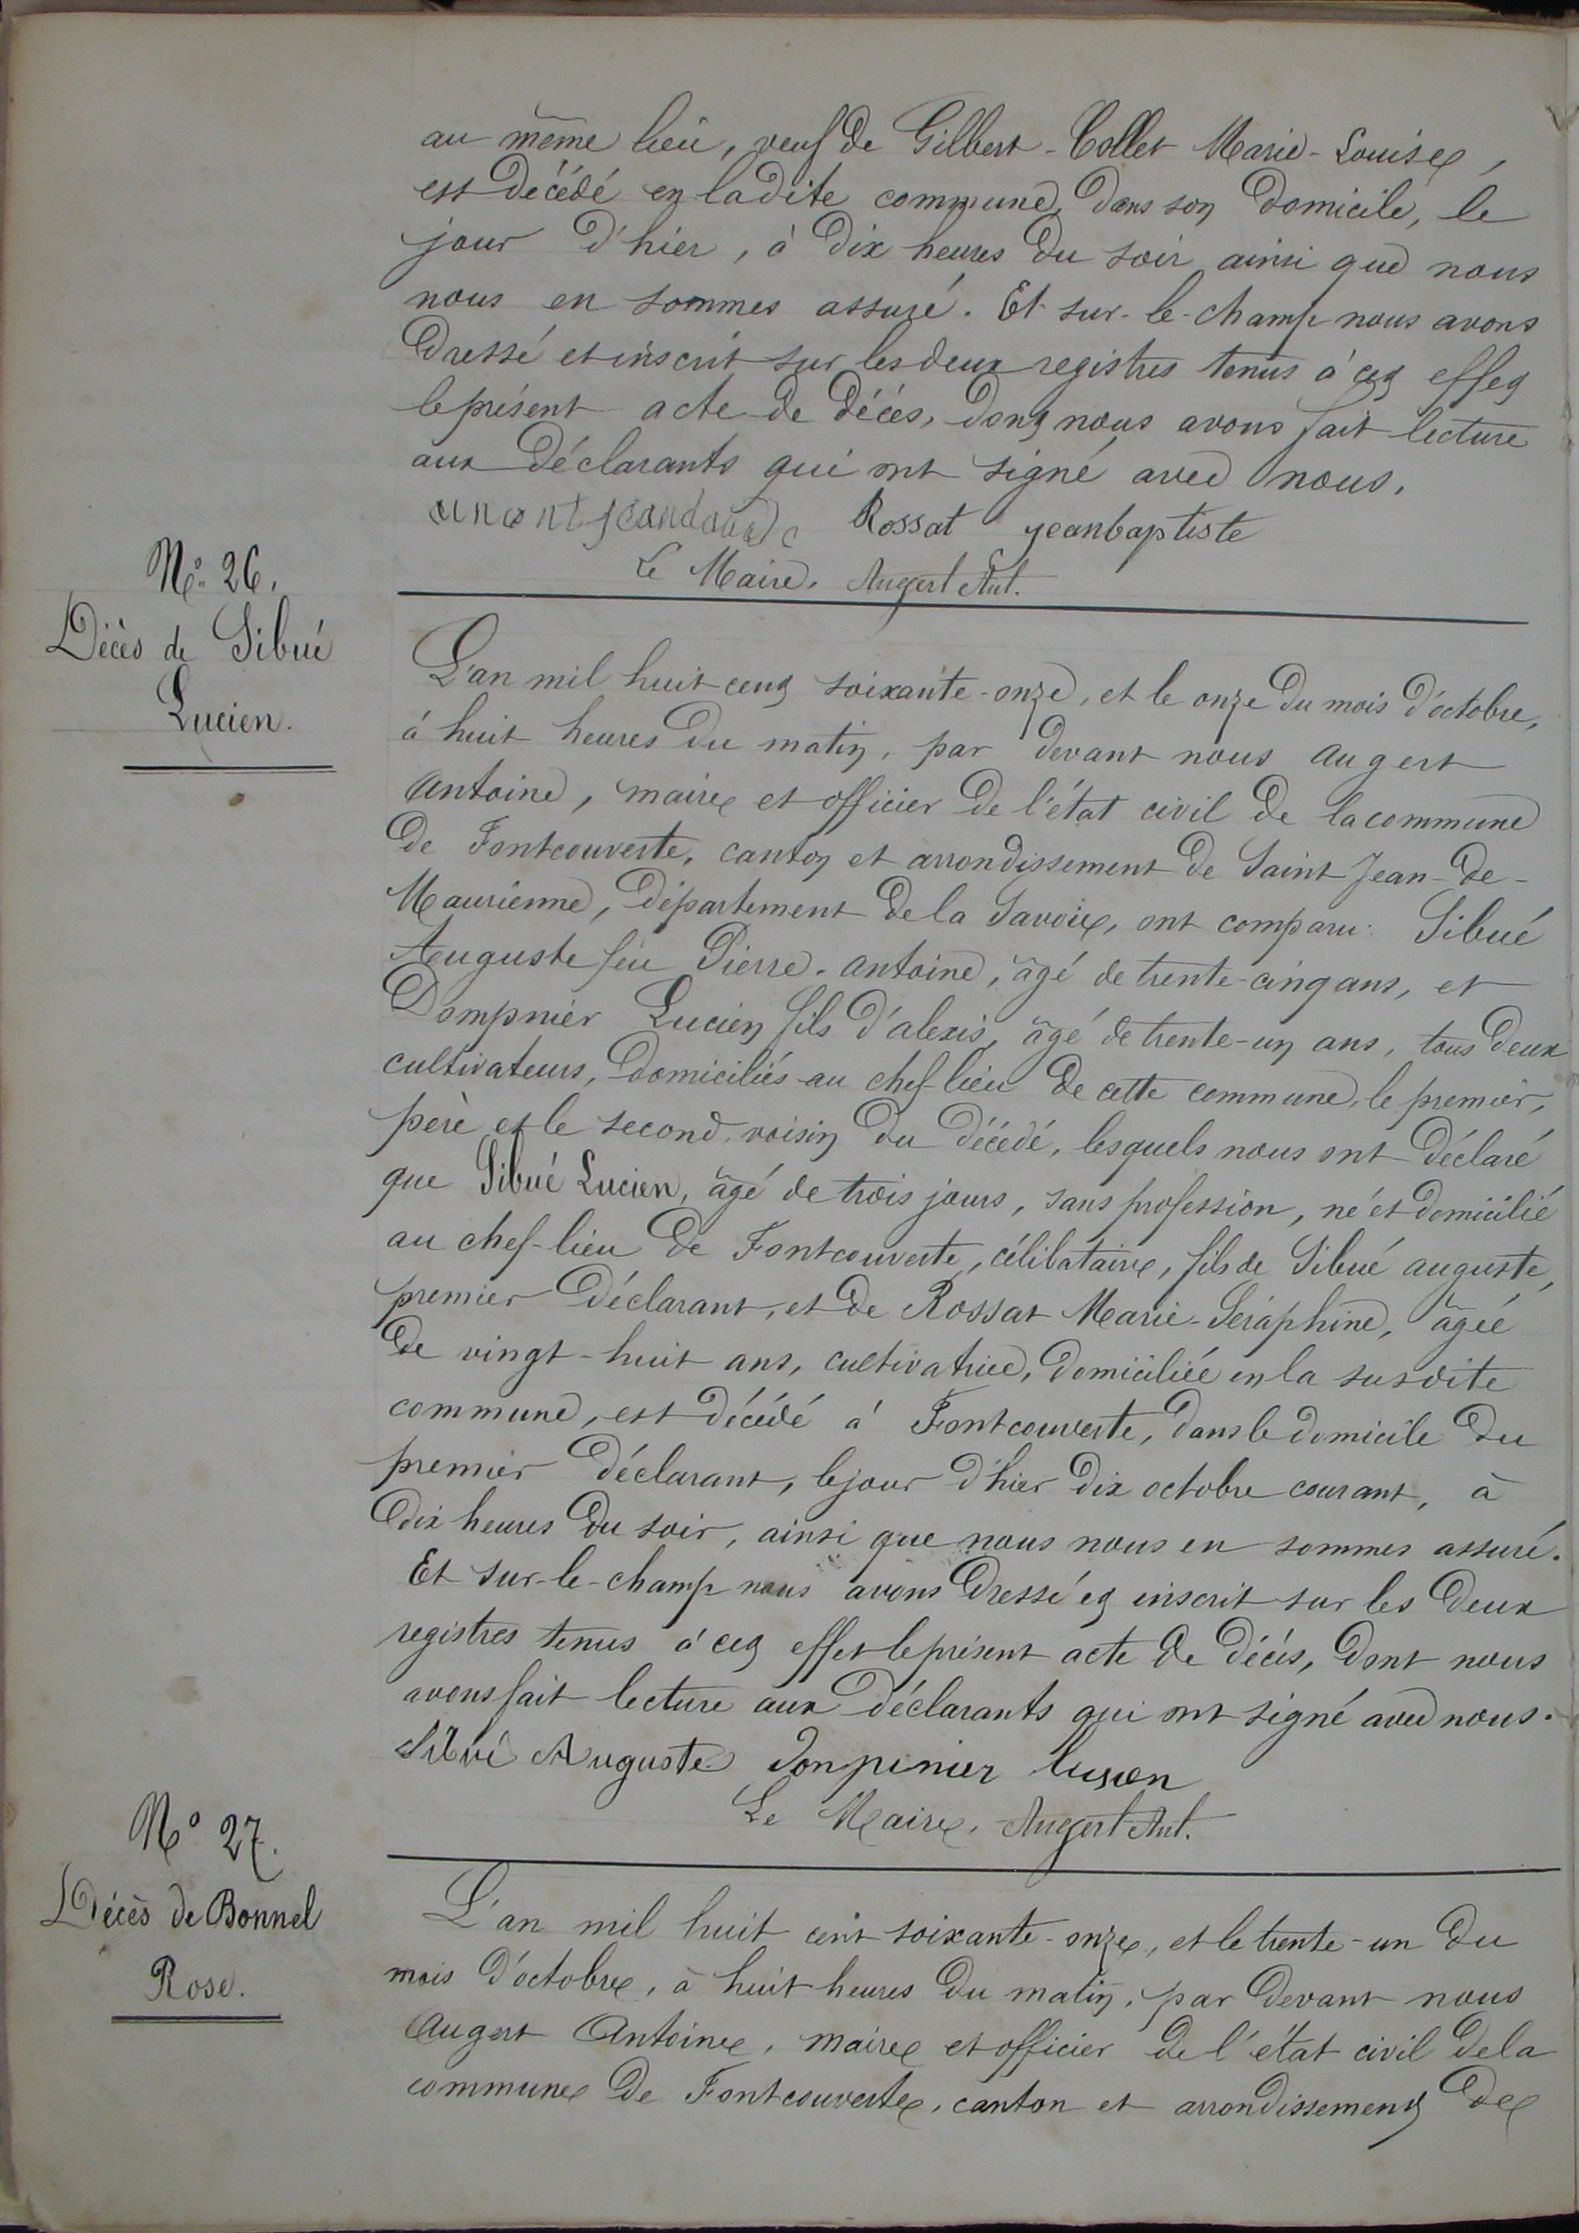 au même lieu, veuf de Gilbert-Collet Marie-Louise,
est décédé en ladite commune, dans son domicile, le
jour d'hier, à dix heures du soir ainsi que nous
nous en sommes assuré. Et sur-le-champ nous avons
dressé et inscrit sur les deux registres tenus à cet effet
le présent acte de décès, dont nous avons fait lecture
aux déclarants qui ont signé avec nous.
Rossat jeanbaptiste
Le Maire, Augert Ant.
N° 26.
Décès de Sibué
Lucien.
L'an mil huit cent soixante-onze, et le onze du mois d'octobre,
à huit heures du matin, par devant nous augert
Antoine, maire et officier de l'état civil de la commune
de Fontcouverte, canton et arrondissement de Saint Jean-de-
Maurienne, département de la Savoie, ont comparu: Sibué
Auguste feu Pierre-antoine, âgé de trente-cinq ans, et
Dompnier Lucien fils d'alexis, âgé de trente-un ans, tous deux
cultivateurs, domiciliés au chef-lieu de cette commune, le premier,
père et le second, voisin du décédé, lesquels nous ont déclaré
que Sibué Lucien, âgé de trois jours, sans profession, né et domicilié
au chef-lieu de Fontcouverte, célibataire, fils de Sibué auguste,
premier déclarant, et de Rossat Marie-Séraphine, âgée
de vingt-huit ans, cultivatrice, domiciliée en la susdite
commune, est décédé à Fontcouverte, dans le domicile du
premier déclarant, le jour d'hier dix octobre courant, à
dix heures du soir, ainsi que nous nous en sommes assuré.
Et sur-le-champ nous avons dressé et inscrit sur les deux
registres tenus à cet effet le présent acte de décès, dont nous
avons fait lecture aux déclarants qui ont signé avec nous.
Sibué Auguste Donpinier lusien
Le Maire, Augert Ant.
N° 27.
Décès de Bonnel
Rose.
L'an mil huit cent soixante-onze, et le trente-un du
mois d'octobre, à huit heures du matin, par devant nous
Augert Antoine, maire et officier de l'état civil de la
commune de Fontcouverte, canton et arrondissement de